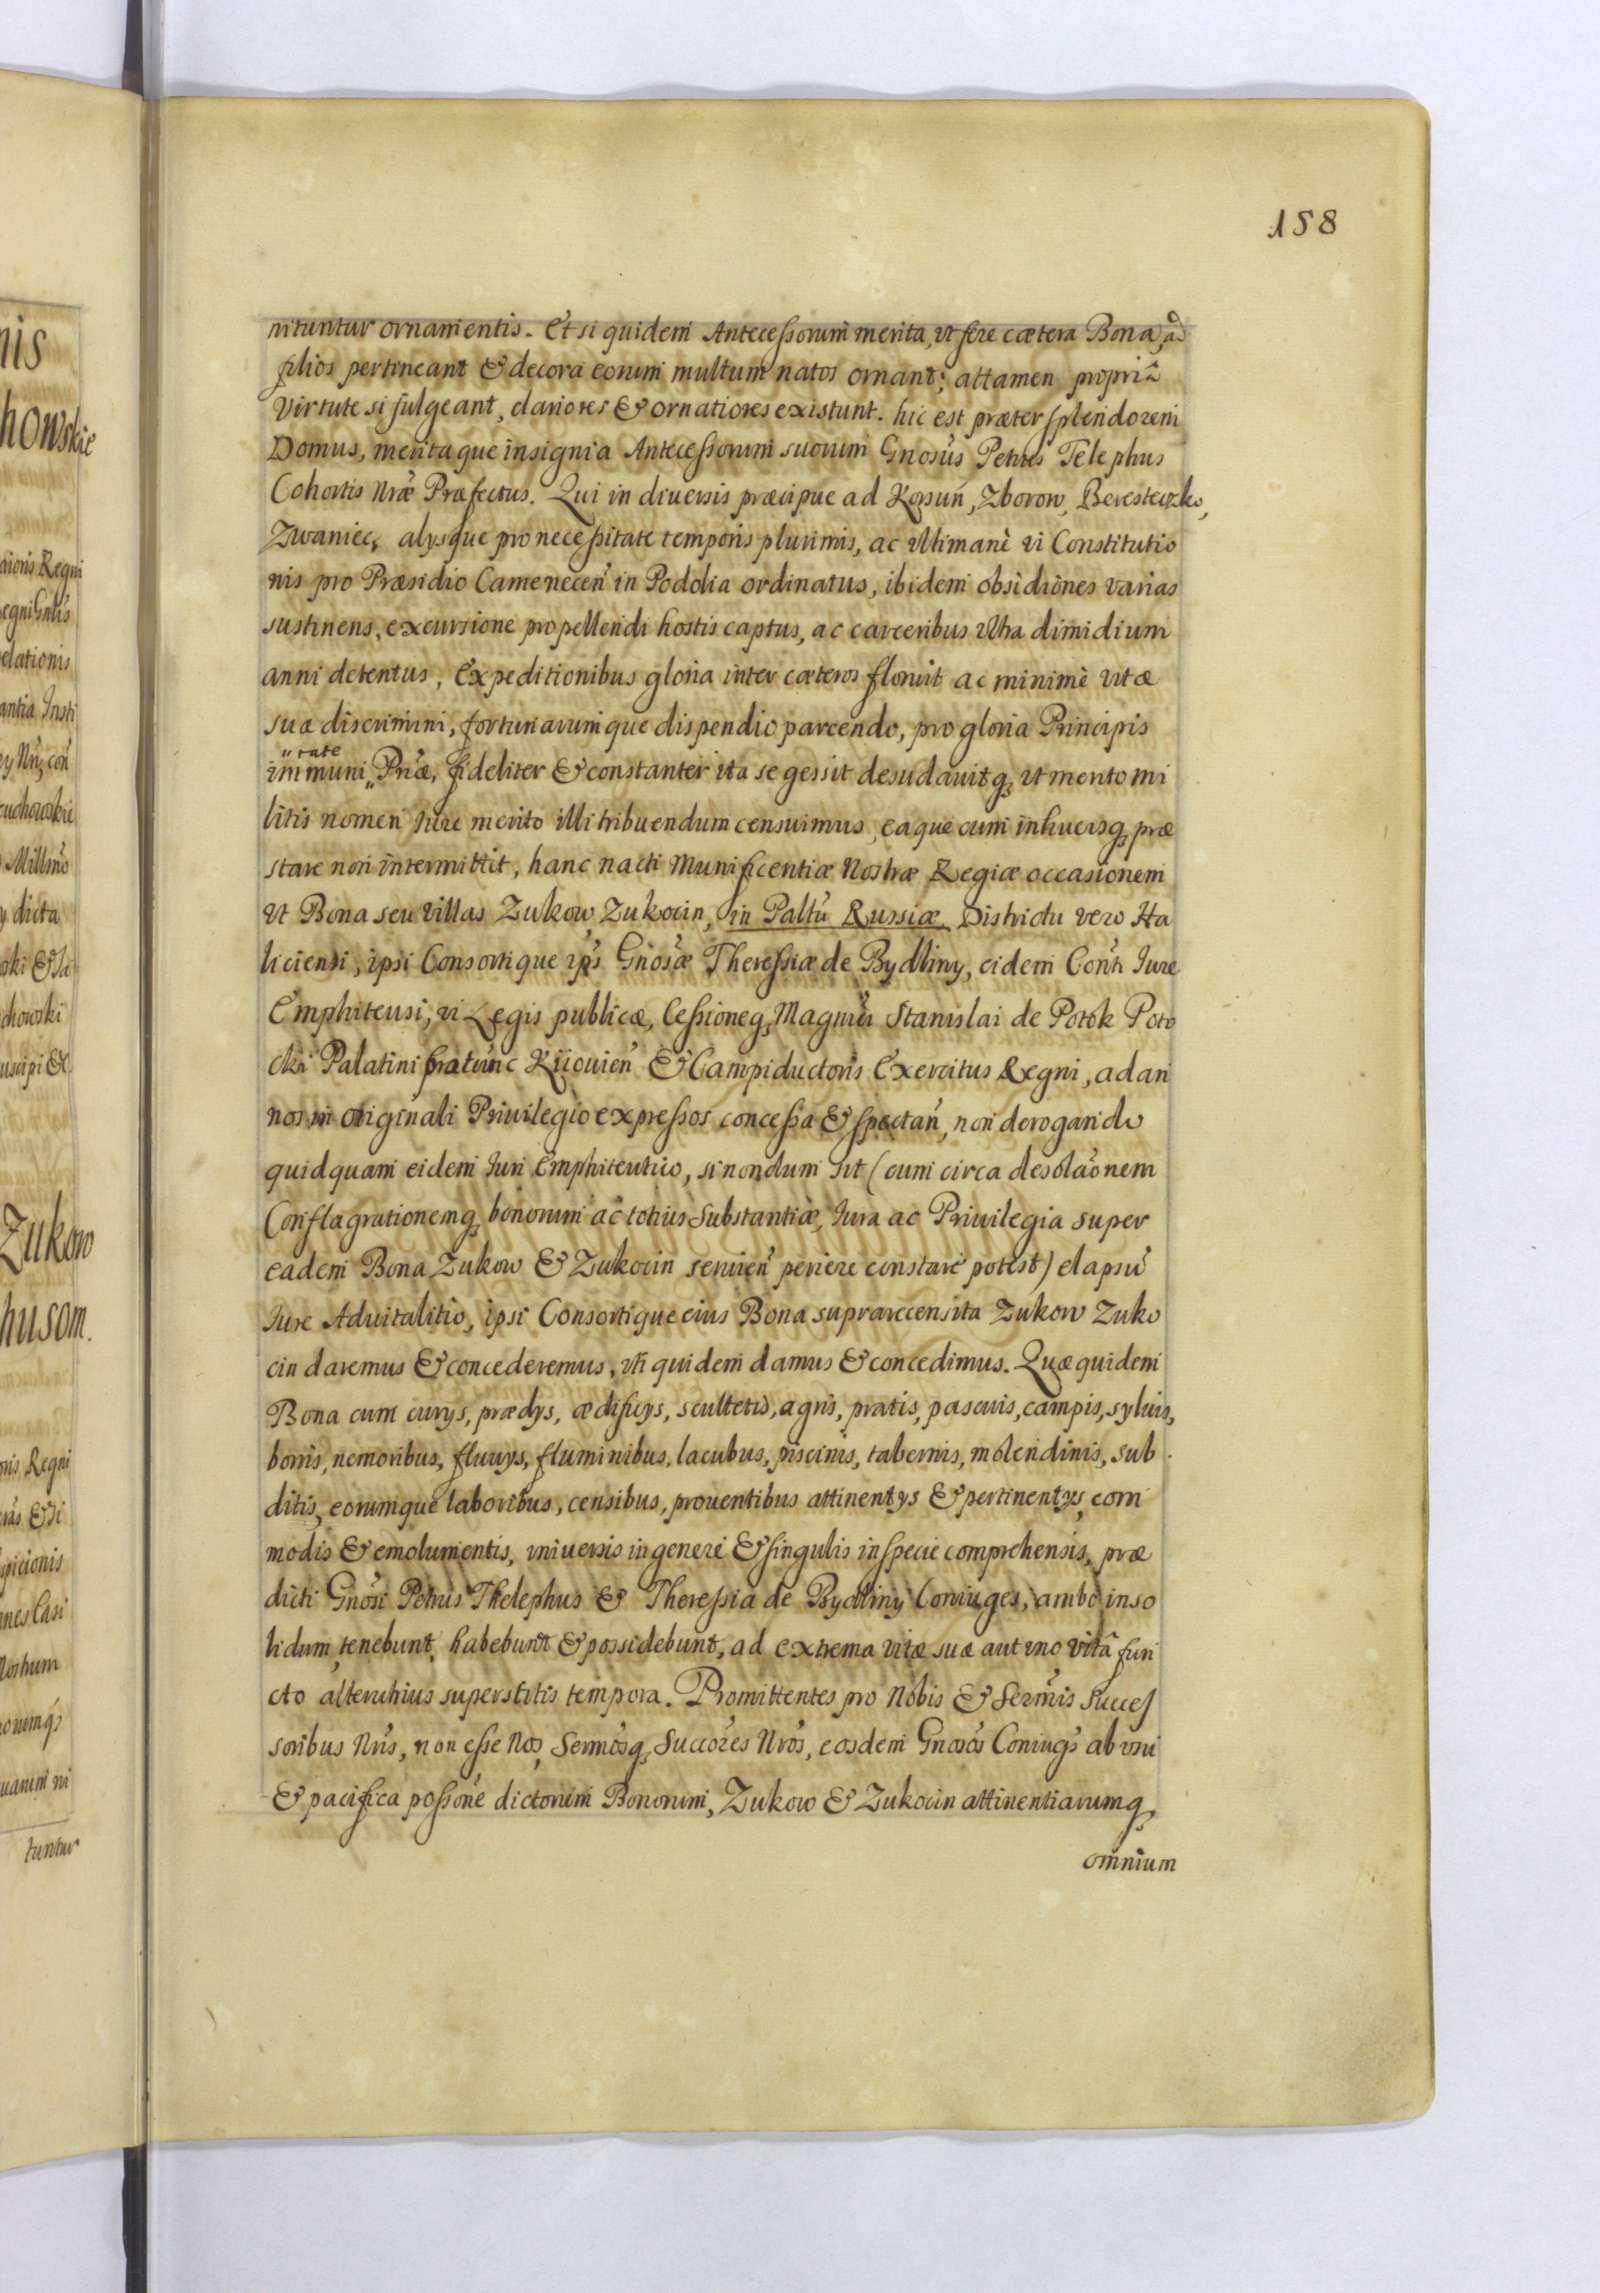 158
nituntur ornamentis. Et si quidem Antecessorum merita, vt fere cætera Bona, ad
filios pertineant & decora eorum multum natos ornant; attamen propriâ
virtute si fulgeant, clariores & ornatiores existunt. hic est præter splendorem
Domus, meritaque insignia Antecessorum suorum Gnosus Petrus Telephus
Cohortis Nræ Præfectus. Qui in diuersis præcipue ad Korsuń, Zborow, Beresteczko,
Zwaniec, alysque pro necessitate temporis plurimis, ac vltimanè vi Constitutio
nis pro Præsidio Camenecen in Podolia ordinatus, ibidem obsidiones varias
sustinens, excursione propellendi hostis captus, ac carceribus vltra dimidium
anni detentus, Expeditionibus gloria inter cæteros floruit ac minimè vitæ
suæ discrimini, fortunarumque dispendio parcendo, pro gloria Principis
immuni Præ, fideliter & constanter ita se gessit desudauitq, vt merito mi
"rate
litis nomen Iure merito illi tribuendum censuimus, eaque cum inhuersq præ
stare non intermittit, hanc nacti Munificentiæ Nostræ Regiæ occasionem
vt Bona seu villas Zukow Zukocin, in Paltu Russiæ Districtu vero Ha
liciensi, ipsi Consortique ips Gnosæ Theressiæ de Bydliny, eidem Conti Iure
Emphiteusi, vi Legis publicæ, Cessioneq Magnici Stanislai de Potok Poto
cki Palatini pratunc Kijouien & Campiductoris Exercitus Regni, ad an
nos in originali Priuilegio expressos concessa & spectan, non derogando
quidquam eidem Iuri Emphiteutico, si nondum sit (cum circa desolaonem
Conflagrationemq bonorum ac totius Substantiæ, Iura ac Priuilegia super
eadem Bona Zukow & Zukocin seruien periere constare potest) elapsu
Iure Aduitalitio, ipsi Consortique eius Bona suprarecensita Zukow Zuko
cin daremus & concederemus, vti quidem damus & concedimus. Quæ quidem
Bona cum curys, prædys, ædificys, scultetis, agris, pratis, pascuis, campis, syluis,
borris, nemoribus, fluuys, fluminibus, lacubus, piscinis, tabernis, molendinis, sub
ditis, eorumque laboribus, censibus, prouentibus attinentys & pertinentys, com
modis & emolumentis, vniuersis in genere & singulis in specie comprehensis, præ
dicti Gnosi Petrus Thelephus & Theressia de Bydliny Coniuges, ambo in so
lidum tenebunt, habebunt & possidebunt, ad extrema vitæ suæ aut vno vitâ fun
cto alterutrius superstitis tempora. Promittentes pro Nobis & Sermis Succes
soribus Nris, non esse Nos, Sermosq Succores Nros, eosdem Gnosos Coniuges ab vsu
& pacifica possone dictorum Bonorum, Zukow & Zukocin attinentiarumq,
omnium